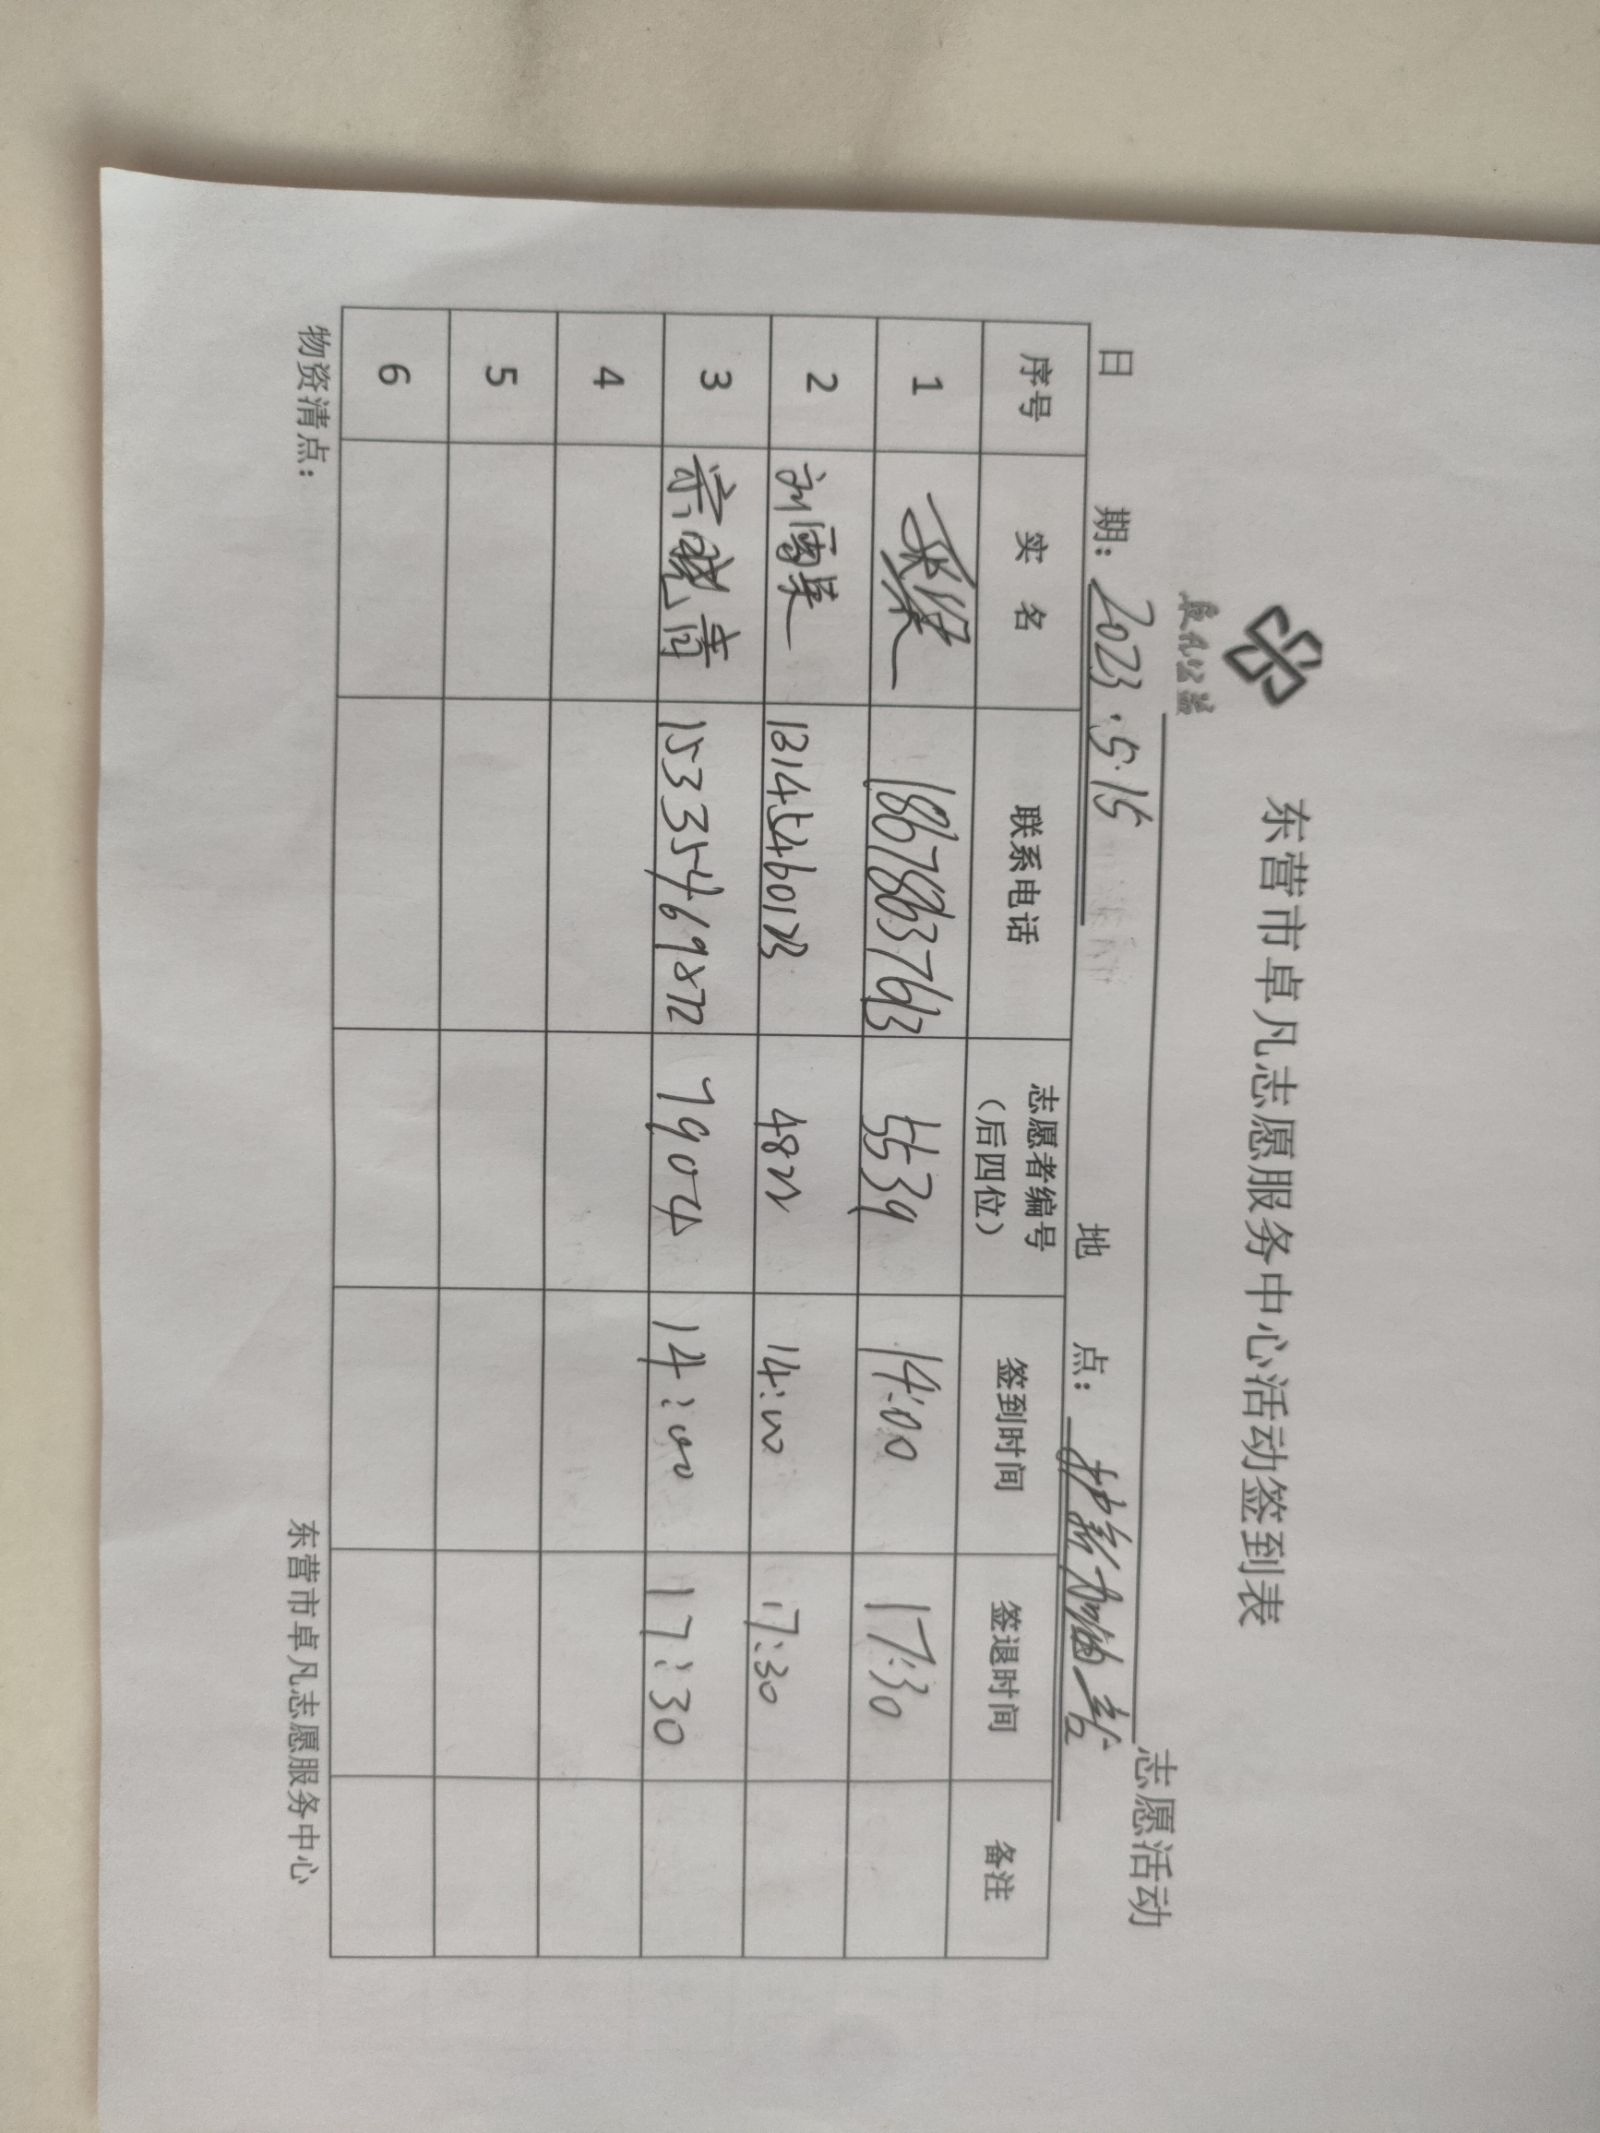 卓凡公益
东营市卓凡志愿服务中心活动签到表
志愿活动
日 期：2023.5.15 地 点：护新加油站
序号 实 名 联系电话 志愿者编号（后四位） 签到时间 签退时间 备注
1 18678637613 5539 14:00 17:30
2 刘国英 13145460173 4822 14:00 17:30
3 宗晓青 15335469872 7904 14:00 17:30
4
5
6
物资清点： 东营市卓凡志愿服务中心